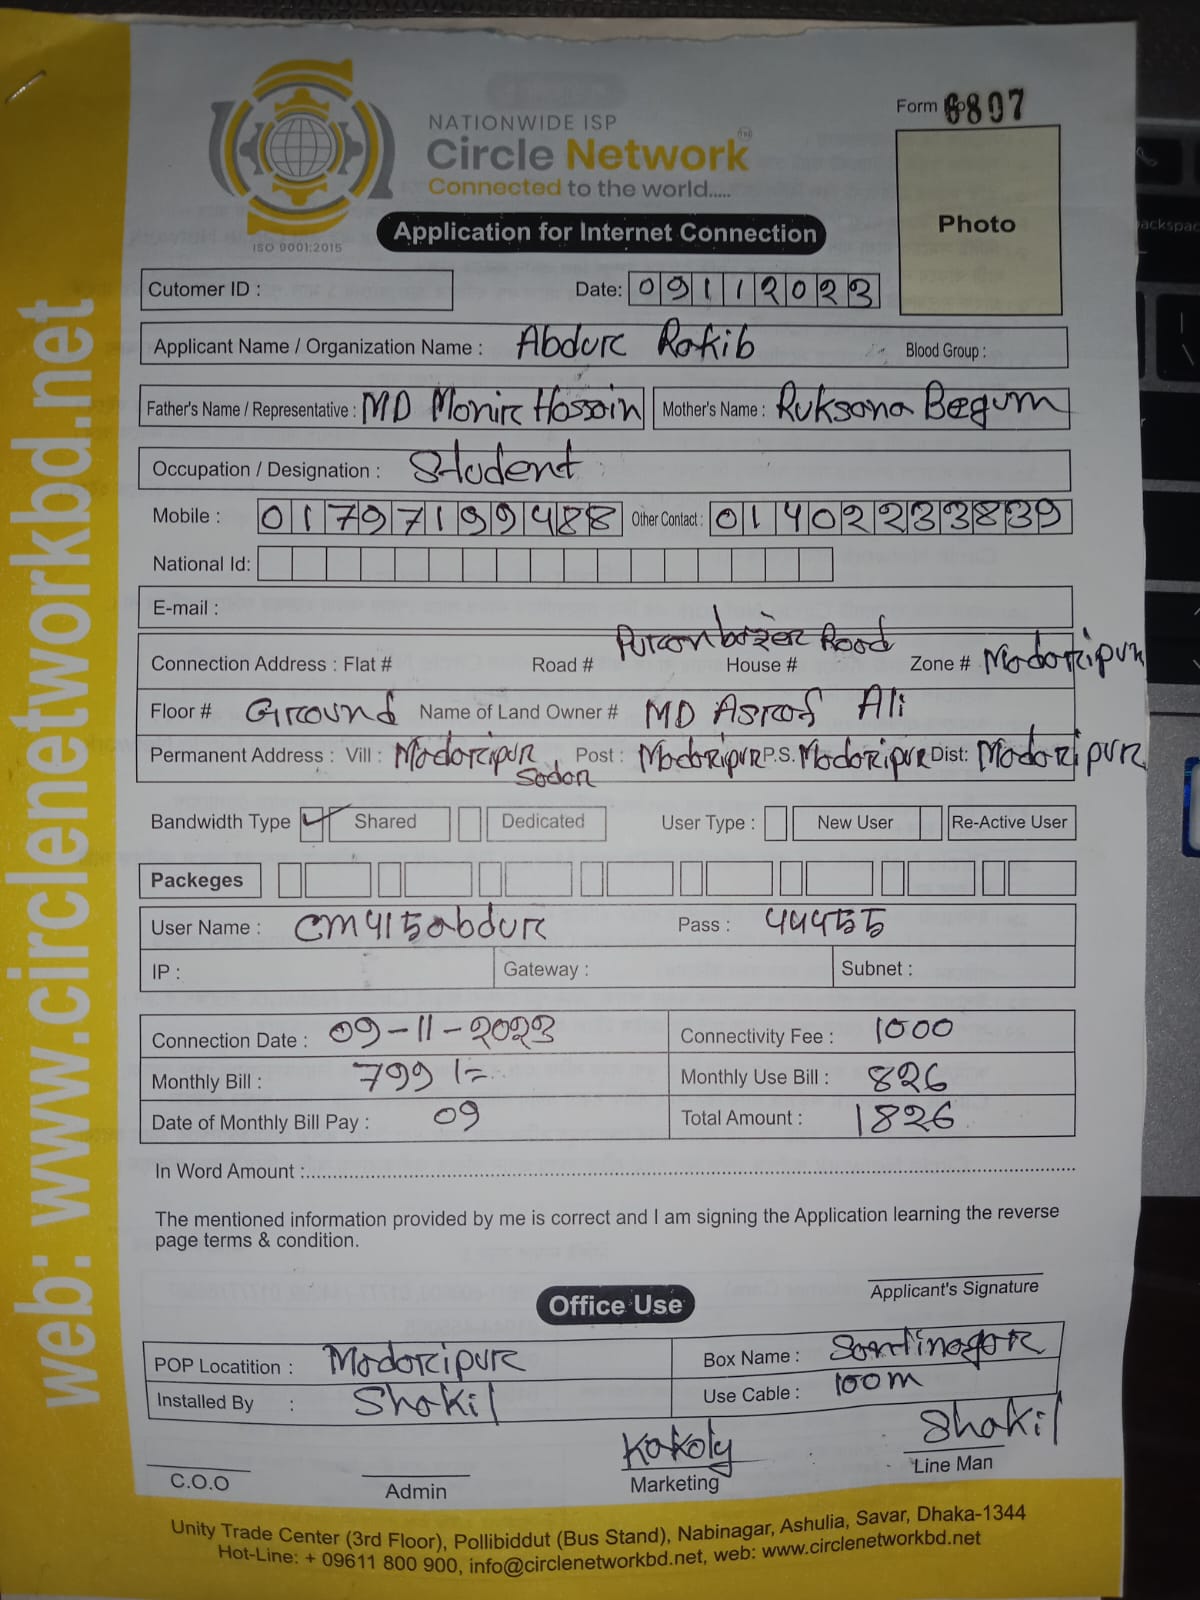 web: www.circlenetworkbd.net
NATIONWIDE ISP
Circle Network
Connected to the world.....
ISO 9001:2015
Form 6807
Photo
Application for Internet Connection
Cutomer ID :
Date: 09112023
Applicant Name / Organization Name : Abdur Rakib Blood Group :
Father's Name / Representative : MD Monir Hossain Mother's Name : Ruksana Begum
Occupation / Designation : Student
Mobile : 01797199488 Other Contact : 01402233839
National Id:
E-mail :
Connection Address : Flat # Road # Puranbazer Road House # Zone # Madaripur
Floor # Ground Name of Land Owner # MD Asraf Ali
Permanent Address : Vill : Madaripur Sador Post : Madaripur P.S. Madaripur Dist: Madaripur
Bandwidth Type Shared Dedicated User Type : New User Re-Active User
Packeges
User Name : CM415abdur Pass : 44455
IP : Gateway : Subnet :
Connection Date : 09-11-2023 Connectivity Fee : 1000
Monthly Bill : 799/= Monthly Use Bill : 826
Date of Monthly Bill Pay : 09 Total Amount : 1826
In Word Amount :
The mentioned information provided by me is correct and I am signing the Application learning the reverse
page terms & condition.
Applicant's Signature
Office Use
POP Locatition : Madaripur Box Name : Santinagar
Installed By : Shakil Use Cable : 100m
Kakoly Shakil
C.O.O Admin Marketing Line Man
Unity Trade Center (3rd Floor), Pollibiddut (Bus Stand), Nabinagar, Ashulia, Savar, Dhaka-1344
Hot-Line: + 09611 800 900, info@circlenetworkbd.net, web: www.circlenetworkbd.net